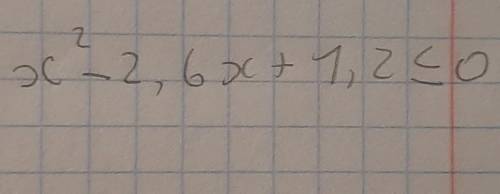 x² - 2,6x + 1,2 ≤ 0